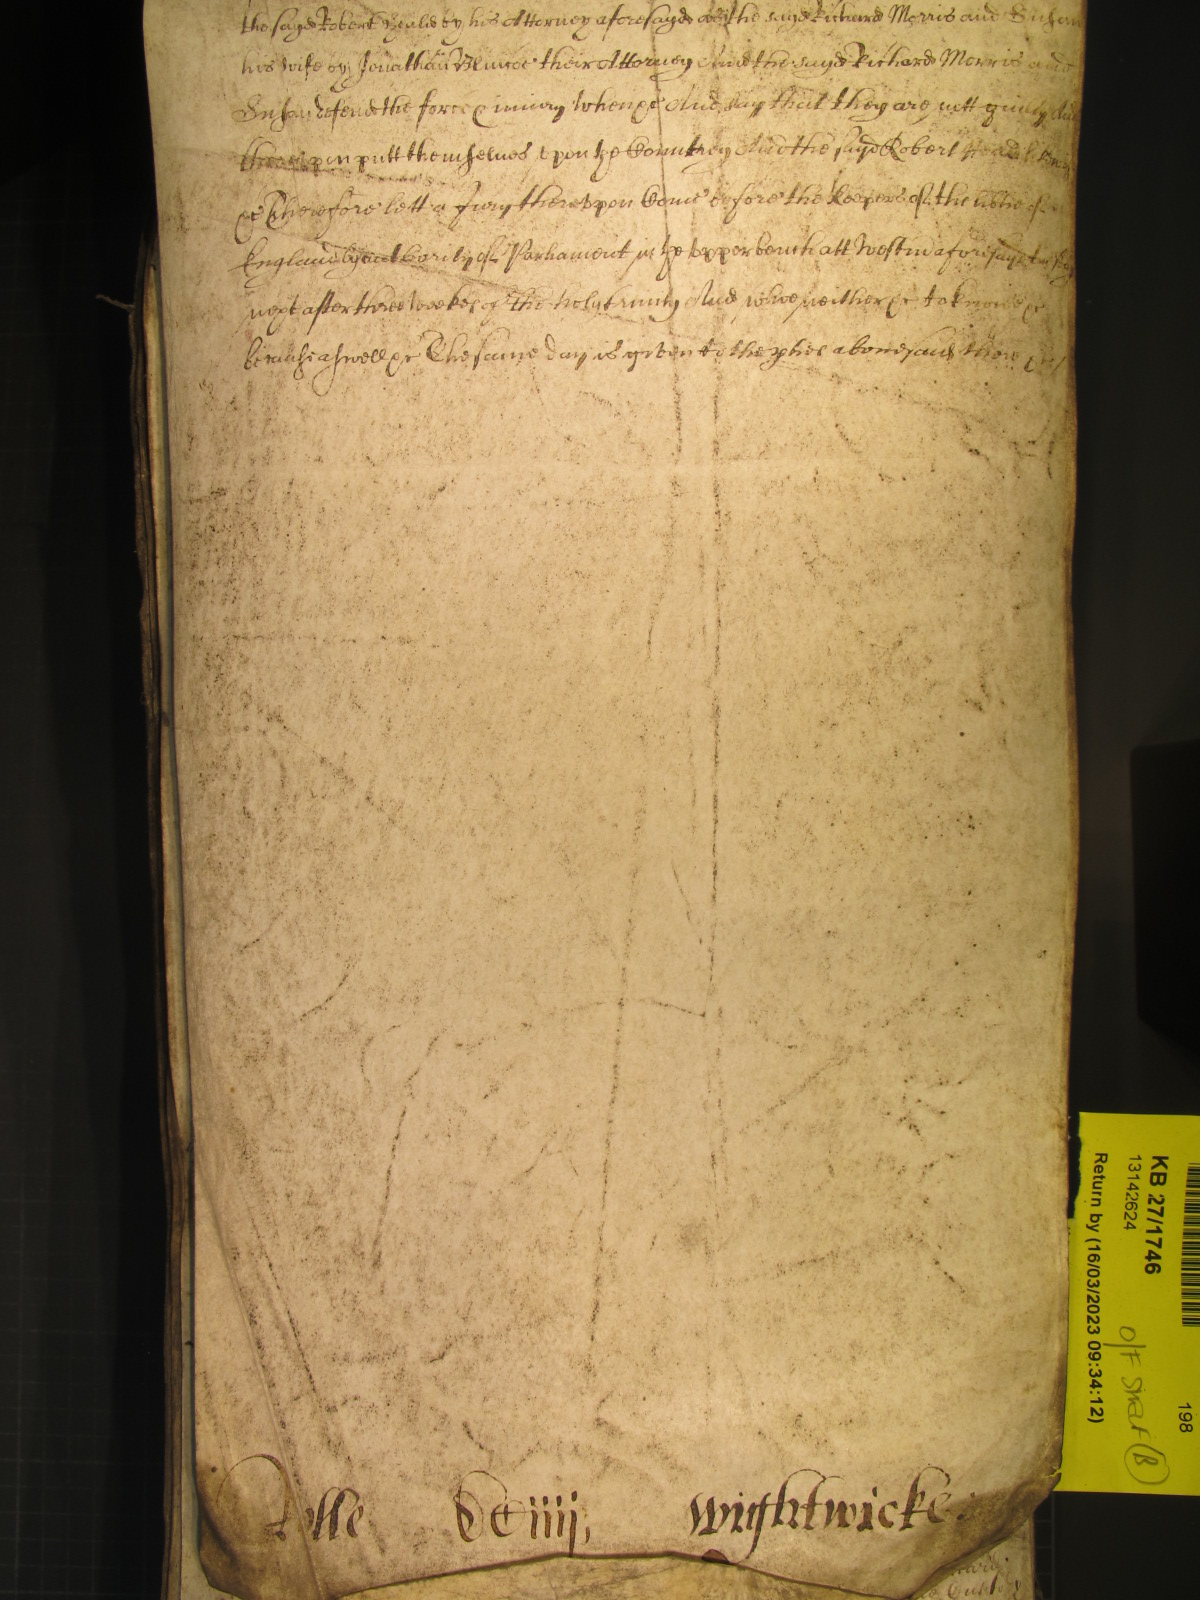 the sayd Robert Heald by his Attorney aforesayd as the sayd Richard Morris and Susan
his wife by Jonathan their Attorney And the sayd Richard Morris and
Susan defend the force & iniury when &c And say that they are nott guilty And
thereupon putt themselves upon ye Countrey And the sayd Robert Heald likewise
&c Therefore lett a Jury thereupon Come before the keepers of the libtie of
England by authority of Parliament in ye upper bench att Westm aforesayd on
next after three weekes of the holy trinity And whoe neither &c to &c
because aswell &c The same day is given to the pties abovesaid there &c
Rolle DCiiij Wightwicke
KB 27/1746
13142624
Return by (16/03/2023 09:34:12)
198
O/F
(B)